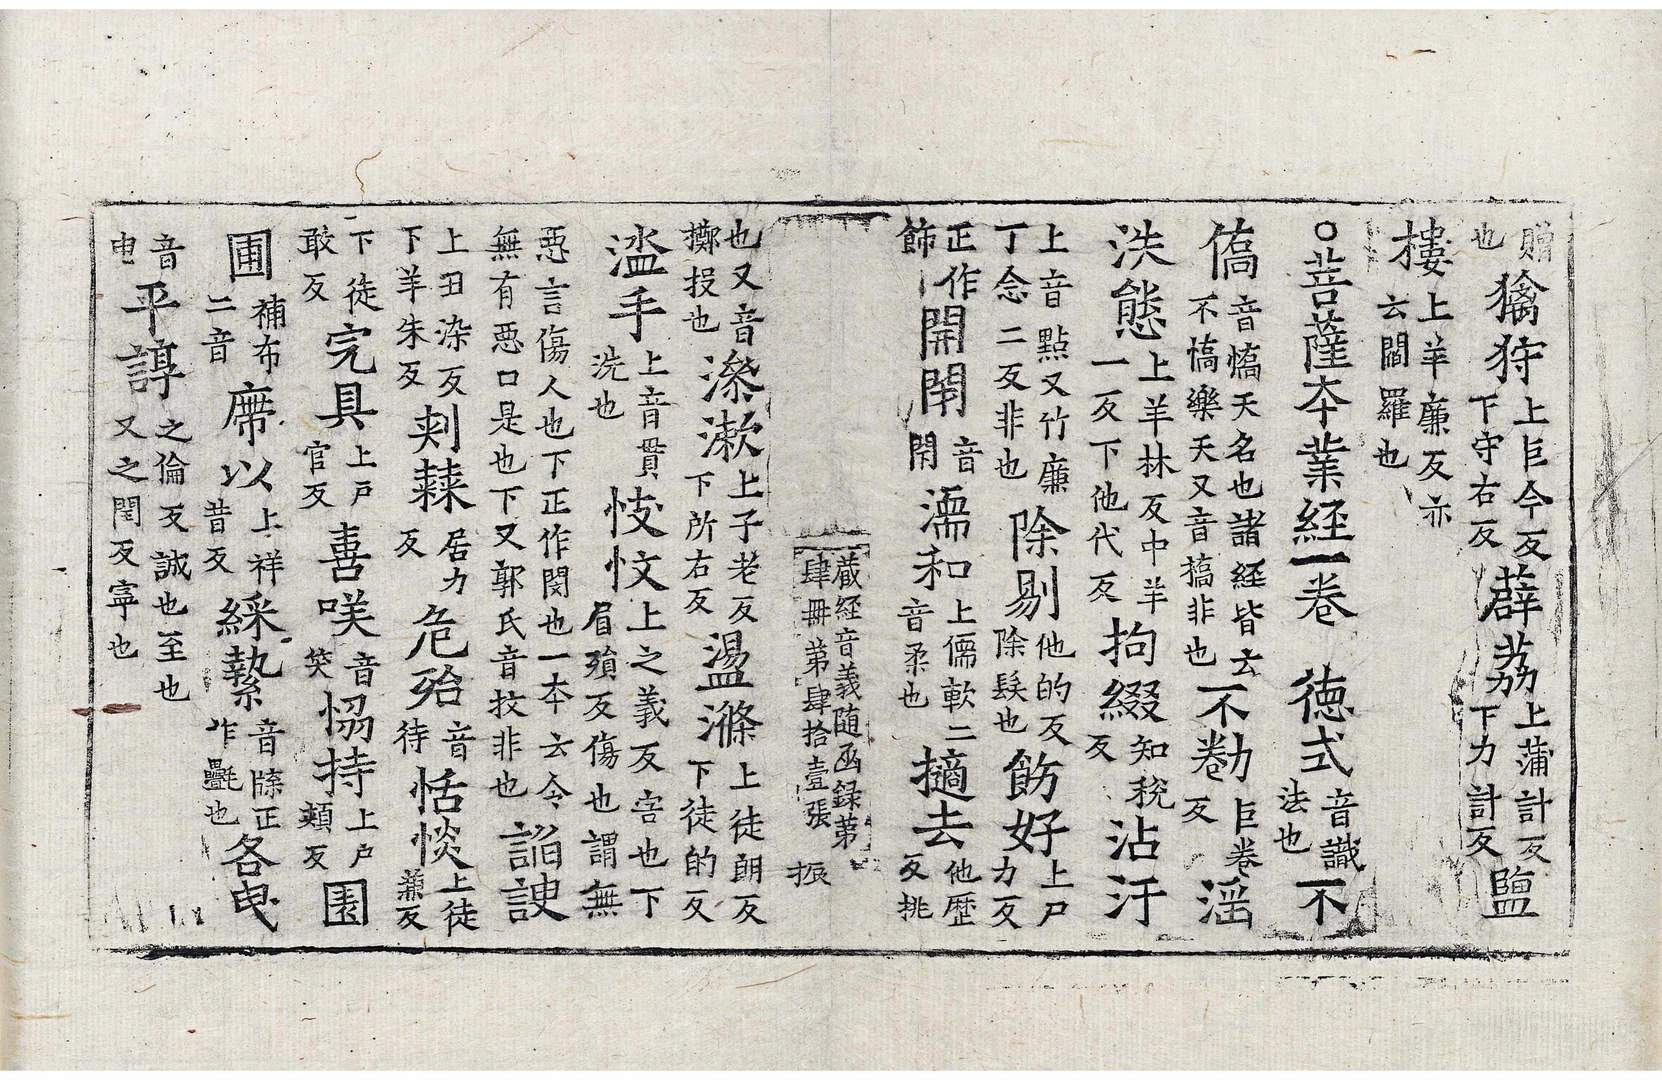 贈也擒狩上巨今反下守右反薜荔上蒲計反下力計反鹽
樓上羊廉反亦云閻羅也
○菩薩本業経一卷　德式音識法也不
僑音憍天名也諸経皆云不憍樂天又音搞非也不勌巨卷反滛
泆態上羊林反中羊一反下他代反拘綴知税反沾汙
上音點又竹廉丁念二反非也除剔他的反除髮也飭好上尸力反
正作飾開閈音閑濡和上儒軟二音柔也擿去他歴反挑
蔵経音義随函録第
肆冊第肆拾壹張　振
也又音擲投也澡漱上子老反下所右反盪滌上徒朗反下徒的反
盥手上音貫洗也忮忟上之義反害也下眉殞反傷也謂無
惡言傷人也下正作閔也一本云令無有惡口是也下又郭氏音抆非也諂諛
上丑染反下羊朱反剌蕀居力反危殆音待恬惔上徒兼反
下徒敢反完具上户官反喜咲音笑恊持上户頰反園
圃補布二音廗以上祥昔反綵縶音牒正作㲲也各曳
音申平諄之倫反誠也至也又之閏反寧也